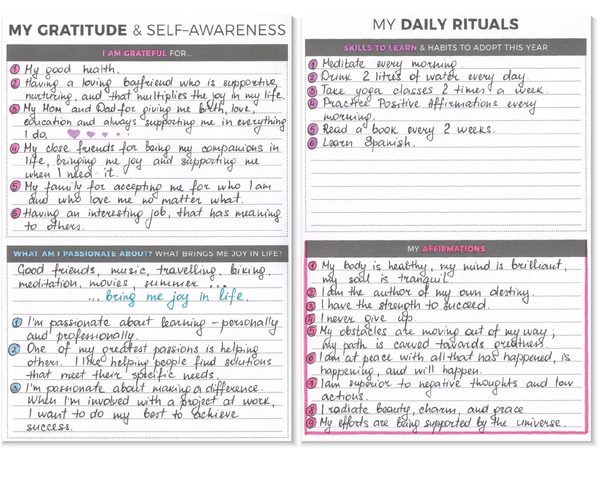 MY GRATITUDE & SELF-AWARENESS
I AM GRATEFUL FOR...
1 My good health.
2 Having a loving boyfriend who is supportive,
nurturing, and that multiplies the joy in my life.
3 My Mom and Dad for giving me birth, love,
education and always supporting me in everything
I do.
4 My close friends for being my companions in
life, bringing me joy and supporting me
when I need it.
5 My family for accepting me for who I am
and who love me no matter what.
6 Having an interesting job, that has meaning
to others.
WHAT AM I PASSIONATE ABOUT? WHAT BRINGS ME JOY IN LIFE?
Good friends, music, travelling, biking,
meditation, movies, summer ...
... bring me joy in life.
1 I'm passionate about learning - personally
and professionally.
2 One of my greatest passions is helping
others. I like helping people find solutions
that meet their specific needs
3 I'm passionate about making a difference.
When I'm involved with a project at work,
I want to do my best to achieve
success.
MY DAILY RITUALS
SKILLS TO LEARN & HABITS TO ADOPT THIS YEAR
1 Meditate every morning.
2 Drink 2 litres of water every day.
3 Take yoga classes 2 times a week.
4 Practice Positive Affirmations every
morning.
5 Read a book every 2 weeks.
6 Learn Spanish.
MY AFFIRMATIONS
1 My body is healthy, my mind is brilliant,
my soul is tranquil.
2 I am the author of my own destiny.
3 I have the strength to succeed.
4 I never give up.
5 My obstacles are moving out of my way;
my path is carved towards greatness.
6 I am at peace with all that has happened, is
happening, and will happen.
7 I am superior to negative thoughts and low
actions.
8 I radiate beauty, charm, and grace
9 My efforts are being supported by the universe.